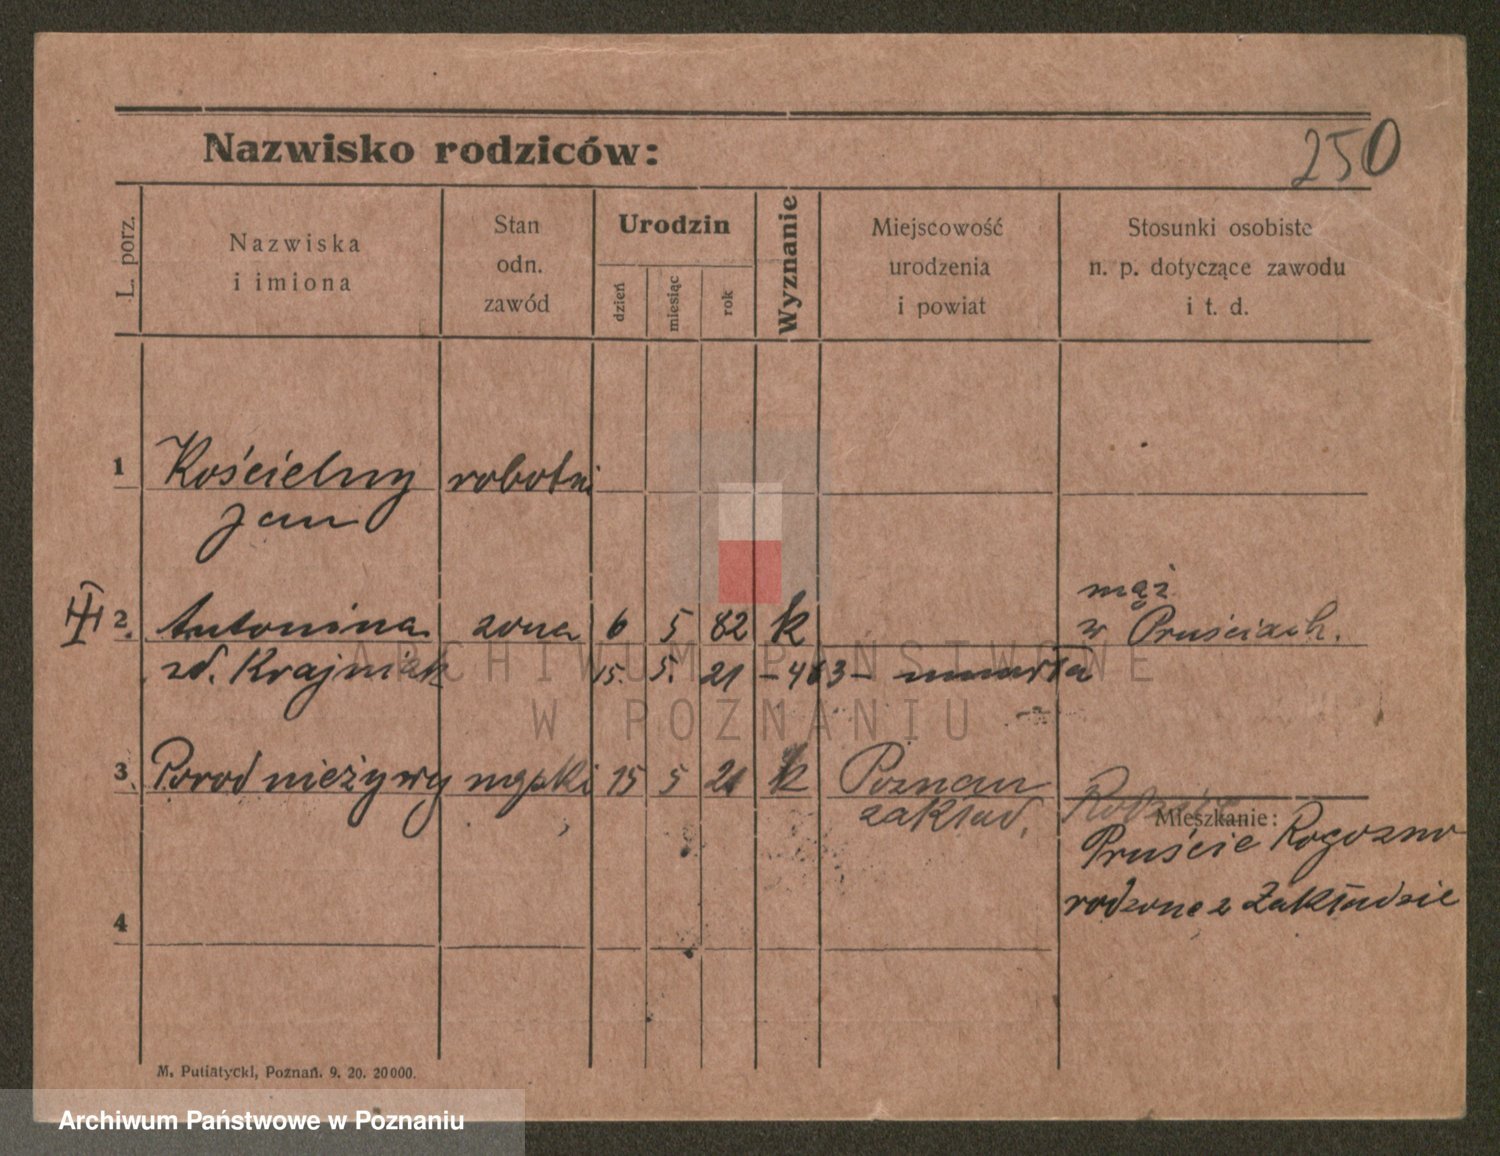 250
Nazwisko rodziców:
L. porz.
Nazwiska
i imiona
Stan
odn.
zawód
Urodzin
dzień
miesiąc
rok
Wyznanie
Miejscowość
urodzenia
i powiat
Stosunki osobiste
n. p. dotyczące zawodu
i t. d.
1 Kościelny robotni
Jan
mąż
III 2. Antonina żona 6 5 82 k w Pruściach.
zd. Krajniak 15. 5. 21 - 463 - umarła
3. Porod nieżywy męski 15 5 21 k Poznań
zakład.
Rodzice
Mieszkanie:
Pruście Rogozno
rodzone w Zakładzie
4
M. Putiatycki, Poznań. 9. 20. 20000.
ARCHIWUM PAŃSTWOWE
W POZNANIU
Archiwum Państwowe w Poznaniu